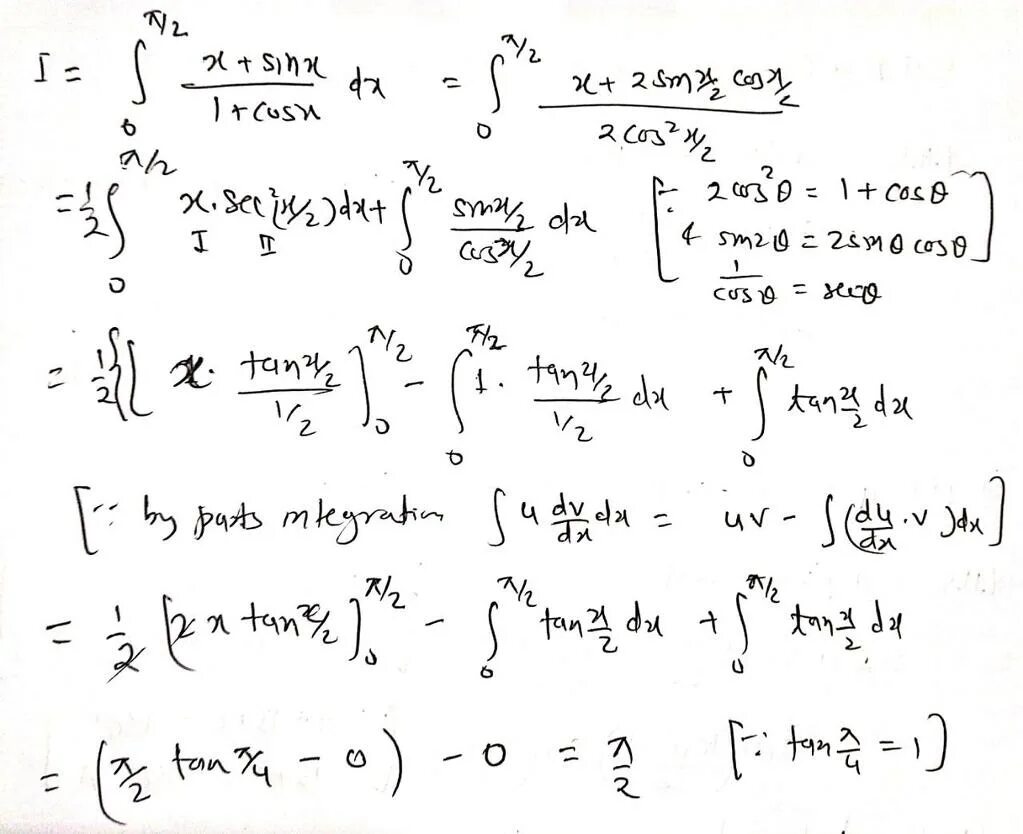 I = ∫₀^{π/2} (x + sinx)/(1 + cosx) dx = ∫₀^{π/2} (x + 2 sin x/2 cos x/2)/(2 cos² x/2)
= 1/2 ∫₀^{π/2} x · sec²(x/2) dx + ∫₀^{π/2} (sin x/2)/(cos x/2) dx [∵ 2cos²θ = 1 + cosθ
I II & sin2θ = 2sinθ cosθ]
1/cosθ = secθ
= 1/2 {[x · (tan x/2)/(1/2)]₀^{π/2} - ∫₀^{π/2} 1 · (tan x/2)/(1/2) dx + ∫₀^{π/2} tan x/2 dx
[∵ by parts integration ∫ u dv/dx dx = uv - ∫(du/dx · v)dx]
= 1/2 [2x tan x/2]₀^{π/2} - ∫₀^{π/2} tan x/2 dx + ∫₀^{π/2} tan x/2 dx
= (π/2 tan π/4 - 0) - 0 = π/2 [∵ tan π/4 = 1]